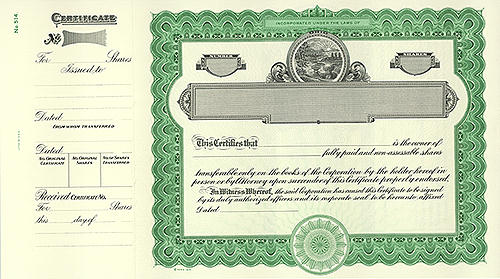 No 514
CERTIFICATE
No
For Shares
Issued to
Dated
FROM WHOM TRANSFERRED
Dated
NO. ORIGINAL CERTIFICATE NO. ORIGINAL SHARES NO. OF SHARES TRANSFERRED
Received CERTIFICATE NO.
For Shares
this day of
INCORPORATED UNDER THE LAWS OF
NUMBER SHARES
This Certifies that is the owner of
fully paid and non-assessable shares
transferable only on the books of the Corporation by the holder hereof in
person or by Attorney upon surrender of this Certificate properly endorsed.
In Witness Whereof, the said Corporation has caused this Certificate to be signed
by its duly authorized officers and its corporate seal to be hereunto affixed
Dated